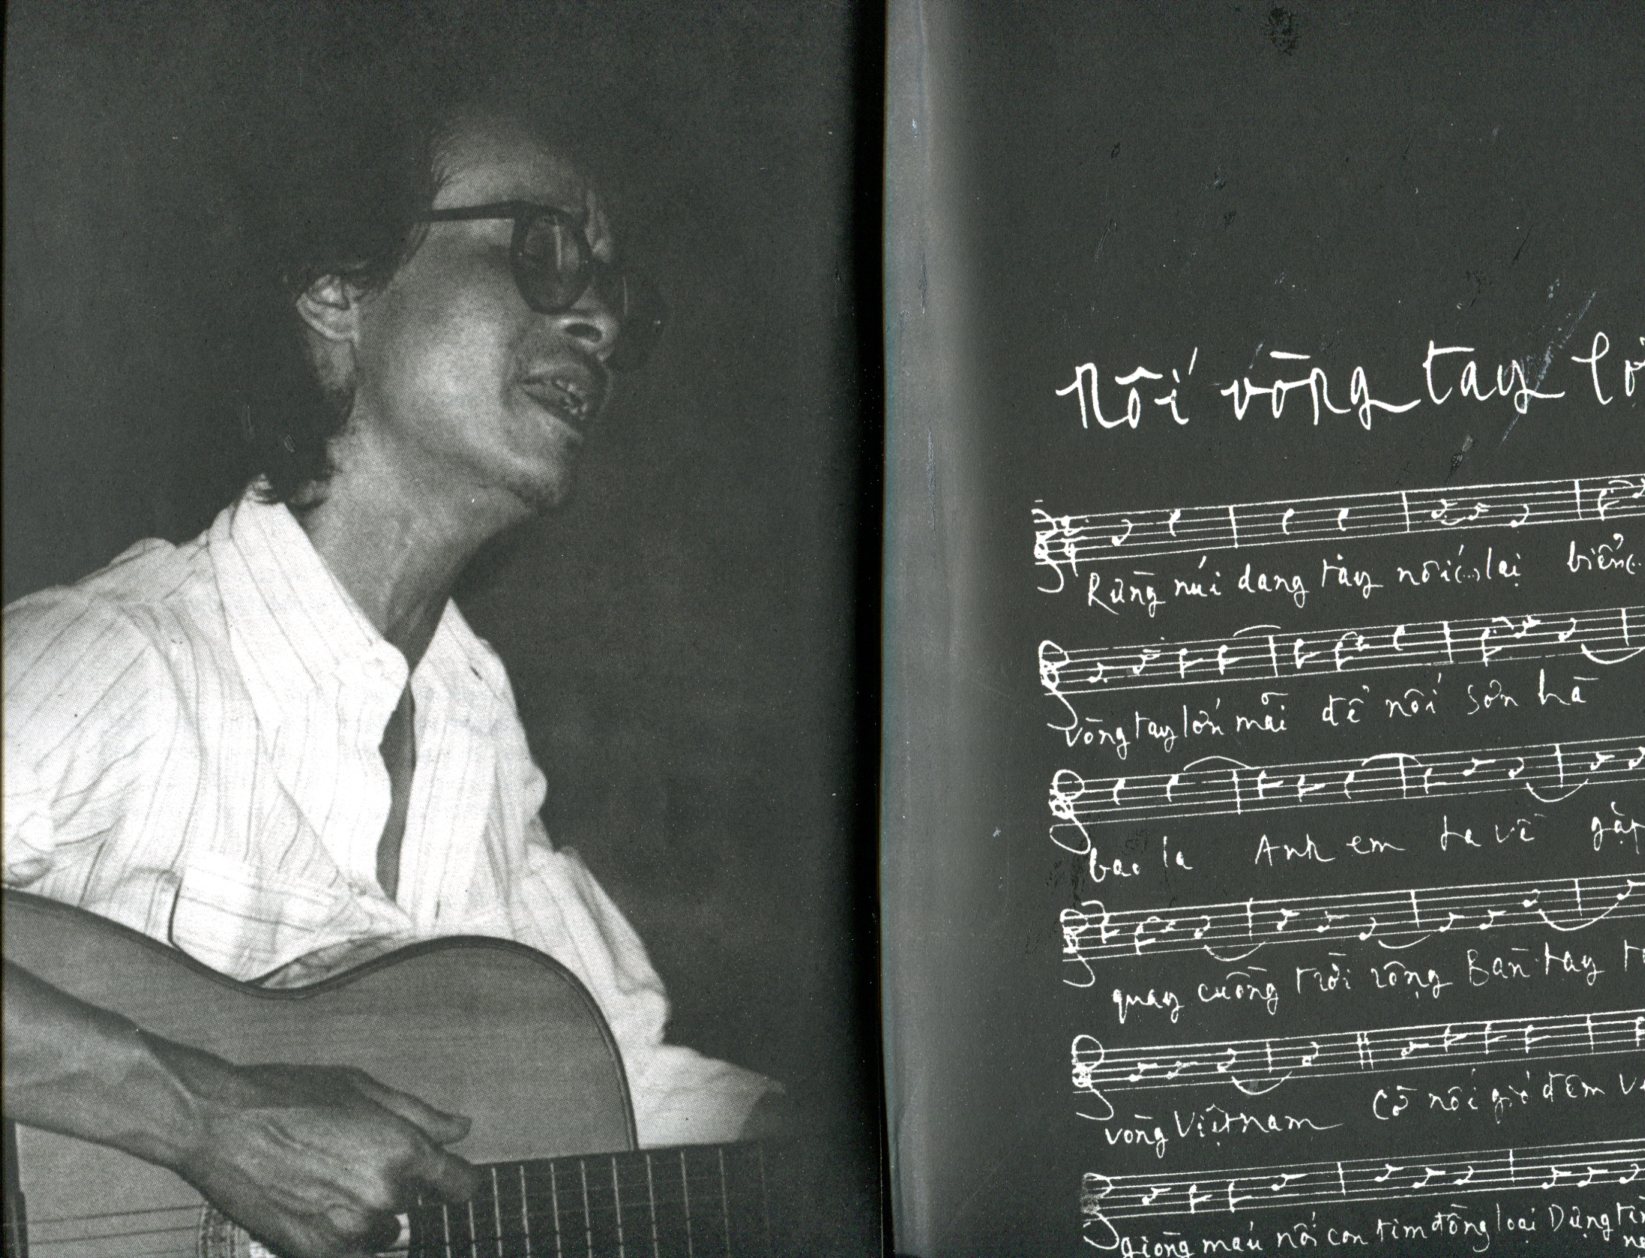 Nối vòng tay lớ
Rừng núi dang tay nối (..) lại biển(..
vòng tay lớn mãi để nối sơn hà
bao la Anh em ta về gặp
quay cuồng trời rộng Bàn tay t
vòng Việt nam Cờ nối gió đêm v
giòng máu nối con tim đồng loại Dựng tìn